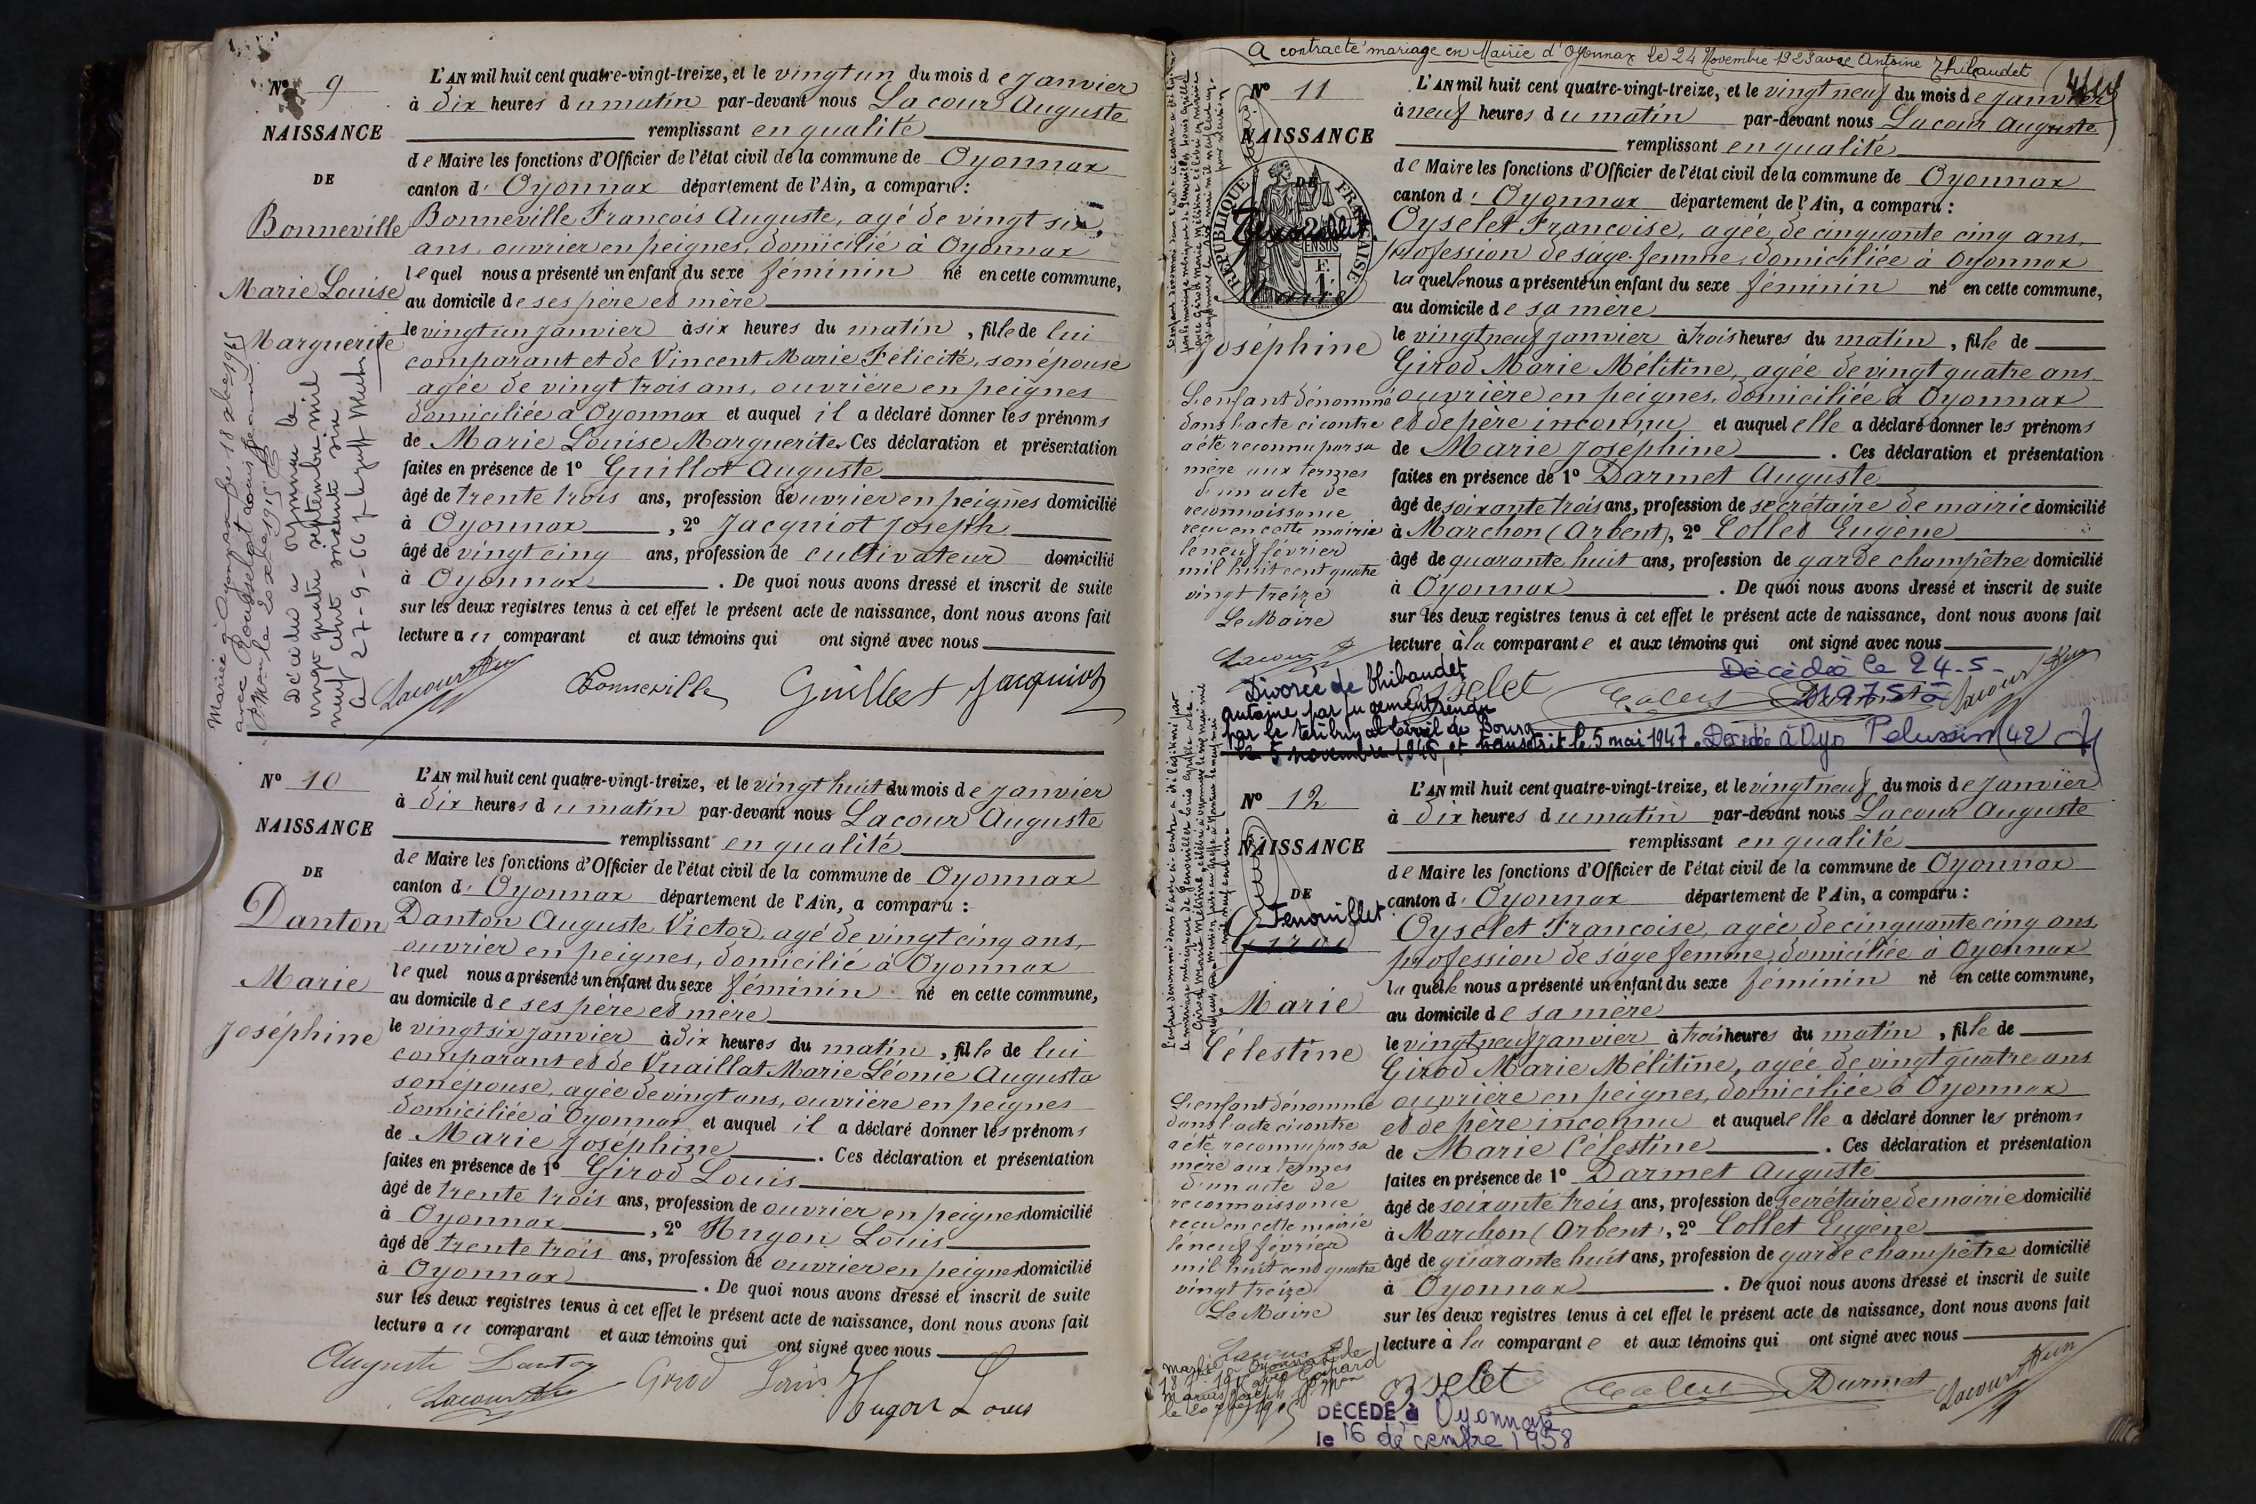 Nº 9
NAISSANCE
DE
Bonneville
Marie Louise
Marguerite
L'AN mil huit cent quatre-vingt-treize, et le vingt un du mois de janvier
à dix heures du matin par-devant nous Lacour Auguste
remplissant en qualité
de Maire les fonctions d'Officier de l'état civil de la commune de Oyonnax
canton d'Oyonnax département de l'Ain, a comparu :
Bonneville François Auguste, agé de vingt six
ans, ouvrier en peignes, domicilié à Oyonnax
lequel nous a présenté un enfant du sexe féminin né en cette commune,
au domicile de ses père et mère
le vingt un janvier à six heures du matin, fille de lui
comparant et de Vincent Marie Félicité, son épouse
agée de vingt trois ans, ouvrière en peignes
domiciliée à Oyonnax et auquel il a déclaré donner les prénoms
de Marie Louise Marguerite. Ces déclaration et présentation
faites en présence de 1º Guillot Auguste
âgé de trente trois ans, profession de ouvrier en peignes domicilié
à Oyonnax, 2º Jacquiot Joseph
âgé de vingt cinq ans, profession de cultivateur domicilié
à Oyonnax. De quoi nous avons dressé et inscrit de suite
sur les deux registres tenus à cet effet le présent acte de naissance, dont nous avons fait
lecture au comparant et aux témoins qui ont signé avec nous
Mariée à Oyonnax le 18
avec Rousselot Louis Jean
Décédée à Oyonnax le
vingt quatre septembre mil
neuf cent soixante six
Le 27-9-66
Lacour Bonneville Guillot Jacquiot
Nº 10
NAISSANCE
DE
Danton
Marie
Joséphine
L'AN mil huit cent quatre-vingt-treize, et le vingt huit du mois de janvier
à dix heures du matin par-devant nous Lacour Auguste
remplissant en qualité
de Maire les fonctions d'Officier de l'état civil de la commune de Oyonnax
canton d'Oyonnax département de l'Ain, a comparu :
Danton Auguste Victor, agé de vingt cinq ans,
ouvrier en peignes, domicilié à Oyonnax
lequel nous a présenté un enfant du sexe féminin né en cette commune,
au domicile de ses père et mère
le vingt six janvier à dix heures du matin, fille de lui
comparant et de Vuaillat Marie Léonie Augusta
son épouse, agée de vingt ans, ouvrière en peignes
domiciliée à Oyonnax et auquel il a déclaré donner les prénoms
de Marie Joséphine. Ces déclaration et présentation
faites en présence de 1º Girod Louis
âgé de trente trois ans, profession de ouvrier en peignes domicilié
à Oyonnax, 2º Hugon Louis
âgé de trente trois ans, profession de ouvrier en peignes domicilié
à Oyonnax. De quoi nous avons dressé et inscrit de suite
sur les deux registres tenus à cet effet le présent acte de naissance, dont nous avons fait
lecture au comparant et aux témoins qui ont signé avec nous
Auguste Danton Girod Louis Hugon Louis
Lacour
A contracté mariage en Mairie d'Oyonnax le 24 Novembre 1923 avec Antoine Thibaudet
Nº 11
NAISSANCE
DE
RÉPUBLIQUE FRANÇAISE
Fenouillet
Marie
Joséphine
L'AN mil huit cent quatre-vingt-treize, et le vingt neuf du mois de janvier
à neuf heures du matin par-devant nous Lacour Auguste
remplissant en qualité
de Maire les fonctions d'Officier de l'état civil de la commune de Oyonnax
canton d'Oyonnax département de l'Ain, a comparu :
Oyselet Françoise, agée de cinquante cinq ans,
profession de sage-femme, domiciliée à Oyonnax
laquelle nous a présenté un enfant du sexe féminin né en cette commune,
au domicile de sa mère
le vingt neuf janvier à trois heures du matin, fille de
Girod Marie Mélitine, agée de vingt quatre ans
ouvrière en peignes, domiciliée à Oyonnax
et de père inconnu et auquel elle a déclaré donner les prénoms
de Marie Joséphine. Ces déclaration et présentation
faites en présence de 1º Darmet Auguste
âgé de soixante trois ans, profession de secrétaire de mairie domicilié
à Marchon (Arbent), 2º Collet Eugène
âgé de quarante huit ans, profession de garde champêtre domicilié
à Oyonnax. De quoi nous avons dressé et inscrit de suite
sur les deux registres tenus à cet effet le présent acte de naissance, dont nous avons fait
lecture à la comparante et aux témoins qui ont signé avec nous
L'enfant dénommé
dans l'acte ci contre
a été reconnu par sa
mère aux termes
d'un acte de
reconnaissance
reçu en cette mairie
le neuf février
mil huit cent quatre
vingt treize
Le Maire
Lacour
Oyselet
Lacour
Décédée le 24-5-
1975 à
Pelussin (42)
Divorcée de Thibaudet
Antoine par jugement rendu
par le tribunal Civil de Bourg
le 5 novembre 1946, et transcrit le 5 mai 1947.
Nº 12
NAISSANCE
DE
Fenouillet
Girod
Marie
Célestine
L'AN mil huit cent quatre-vingt-treize, et le vingt neuf du mois de janvier
à dix heures du matin par-devant nous Lacour Auguste
remplissant en qualité
de Maire les fonctions d'Officier de l'état civil de la commune de Oyonnax
canton d'Oyonnax département de l'Ain, a comparu :
Oyselet Françoise, agée de cinquante cinq ans,
profession de sage femme, domiciliée à Oyonnax
laquelle nous a présenté un enfant du sexe féminin né en cette commune,
au domicile de sa mère
le vingt neuf janvier à trois heures du matin, fille de
Girod Marie Mélitine, agée de vingt quatre ans
ouvrière en peignes, domiciliée à Oyonnax
et de père inconnu et auquel elle a déclaré donner les prénoms
de Marie Célestine. Ces déclaration et présentation
faites en présence de 1º Darmet Auguste
âgé de soixante trois ans, profession de secrétaire de mairie domicilié
à Marchon (Arbent), 2º Collet Eugène
âgé de quarante huit ans, profession de garde champêtre domicilié
à Oyonnax. De quoi nous avons dressé et inscrit de suite
sur les deux registres tenus à cet effet le présent acte de naissance, dont nous avons fait
lecture à la comparante et aux témoins qui ont signé avec nous
L'enfant dénommé
dans l'acte ci contre
a été reconnu par sa
mère aux termes
d'un acte de
reconnaissance
reçu en cette mairie
le neuf février
mil huit cent quatre
vingt treize
Le Maire
Lacour
Oyselet Darmet Lacour
DÉCÉDÉ à Oyonnax
le 16 décembre 1958